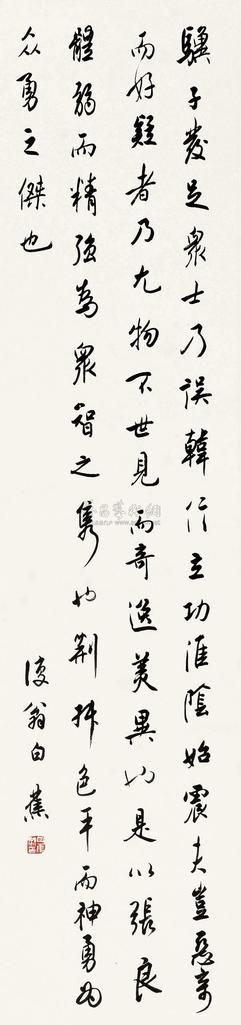 驥子發足眾士乃誤韓信立功淮陰始震夫豈惡奇
而好疑者乃尤物不世見而奇逸美異也是以張良
體弱而精強為眾智之雋也荊軻色平而神勇為
众勇之傑也
復翁白蕉